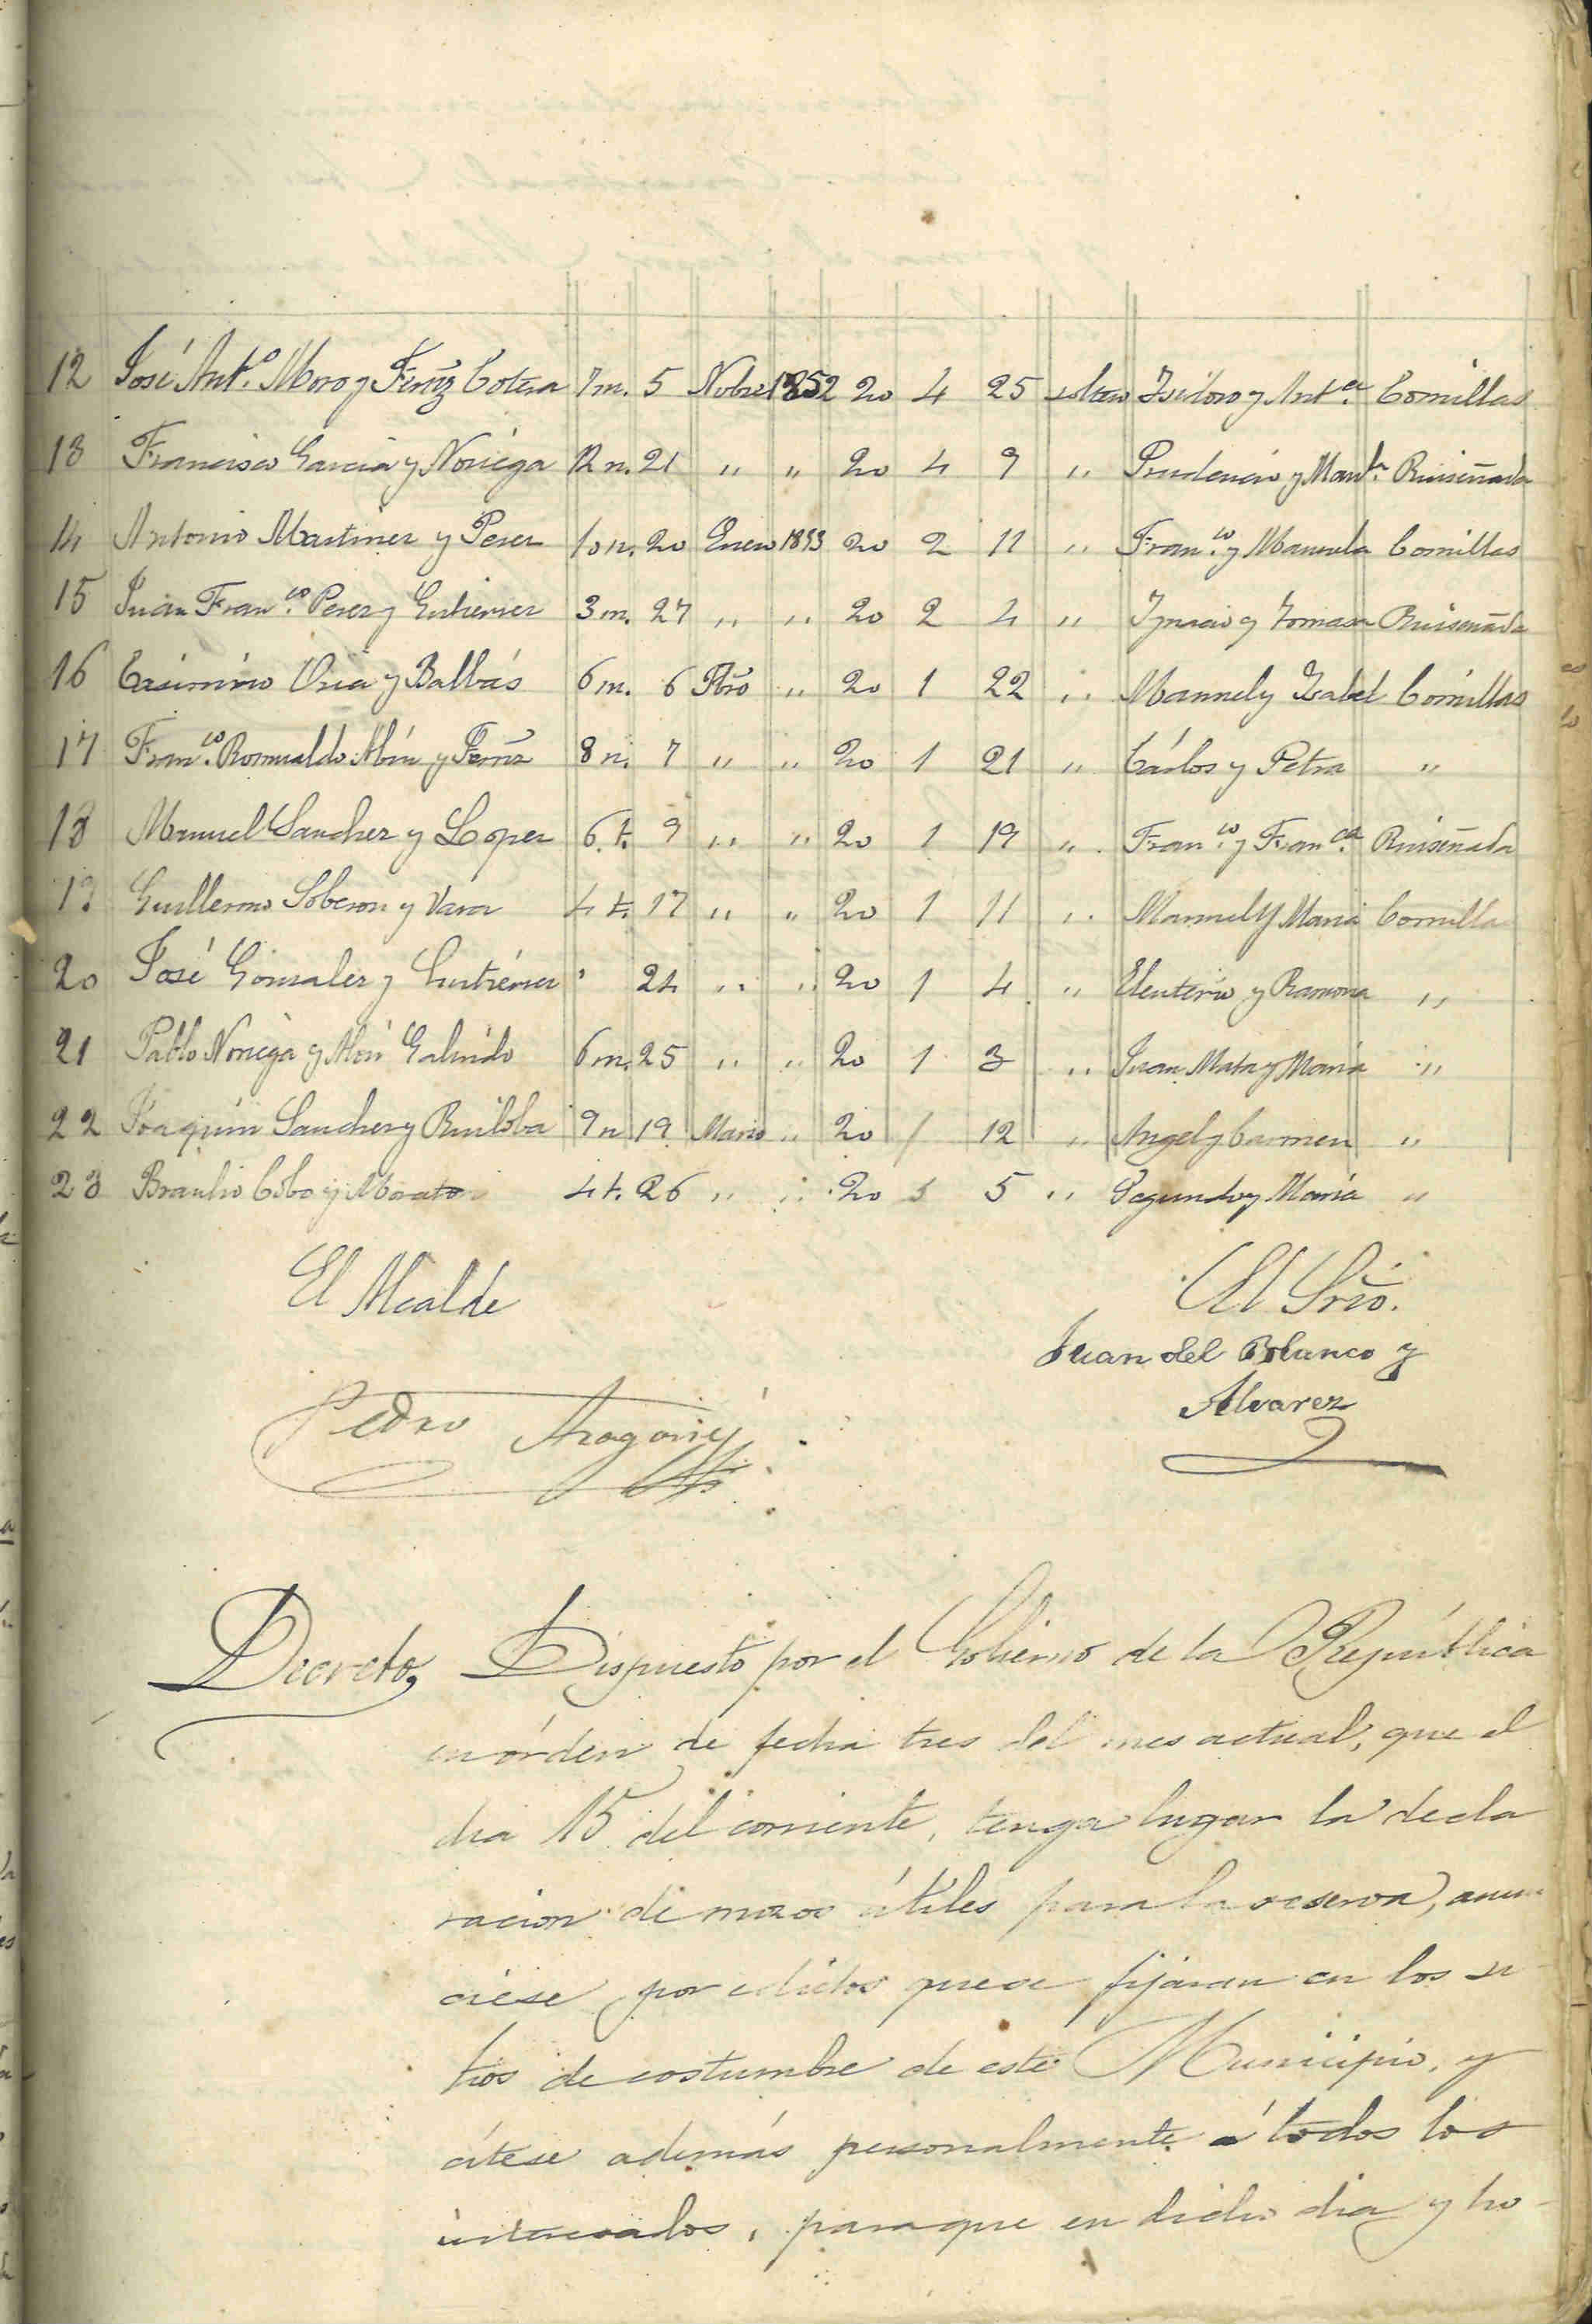 12 José Ant.º Moro y Fernz Cotera 7 m. 5 Nobre 1852 20 4 25 soltero Isidoro y Ant.ª Comillas
13 Francisco Garcia y Noriega 12 n. 21 " " 20 4 9 " Prudencio y Man.la Ruiseñada
14 Antonio Martinez y Perez 10 n. 20 Enero 1853 20 2 11 " Fran.co y Manuela Comillas
15 Juan Fran.co Perez y Gutierrez 3 m. 27 " " 20 2 4 " Ignacio y Tomasa Ruiseñada
16 Casimiro Oria y Balbás 6 m. 6 Fbro " 20 1 22 " Manuel y Isabel Comillas
17 Fran.co Romualdo Abín y Fernz 8 n. 7 " " 20 1 21 " Cárlos y Petra "
18 Manuel Sanchez y Lopez 6 t. 9 " " 20 1 19 " Fran.co y Fran.ca Ruiseñada
19 Guillermo Soberon y Vara 4 t. 17 " " 20 1 11 " Manuel y Maria Comilla
20 José Gonzalez y Gutiérrez " 24 " " 20 1 4 " Eleuterio y Ramona "
21 Pablo Noriega y Galindo 6 m. 25 " " 20 1 3 " Juan Mata y Maria "
22 Joaquín Sanchez y Ruiloba 9 n 19 Marzo " 20 1 12 " Angel y Carmen "
23 Braulio Cobo y Morato 4 t. 26 " " 20 5 " Segundo y Maria "
El Alcalde
El Srio.
Juan del Blanco y
Alvarez
Pedro
Decreto, Dispuesto por el Gobierno de la República
en órden de fecha tres del mes actual, que el
dia 15 del corriente, tenga lugar la decla
racion de mozos útiles para la reserva, anun
ciese por edictos que se fijaran en los si
tios de costumbre de este Municipio, y
cítese además personalmente á todos los
interesados, para que en dicho dia y ho-